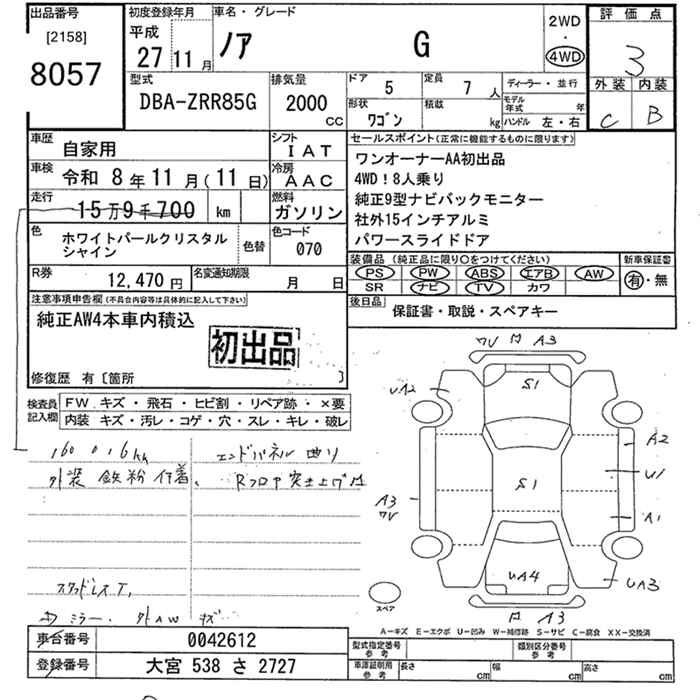 出品番号
[2158]
8057
初度登録年月
平成
27 11月
車名・グレード
ノア G
2WD
・
4WD
評価点
3
外装 内装
C B
型式
DBA-ZRR85G
排気量
2000 CC
ドア 5
定員 7 人
形状 ワゴン
積載 kg
ディーラー・並行
モデル年式 年
ハンドル 左・右
車歴 自家用
シフト IAT
車検 令和 8年11月(11日)
冷房 AAC
走行 15万9千700 km
燃料 ガソリン
色 ホワイトパールクリスタル
シャイン
色替
色コード 070
R券 12,470円
名変通知期限 月 日
セールスポイント(正常に機能するものに限ります)
ワンオーナーAA初出品
4WD!8人乗り
純正9型ナビバックモニター
社外15インチアルミ
パワースライドドア
装備品 (純正品に限り○をつけてください)
PS PW ABS エアB AW
SR ナビ TV カワ
新車保証書
有・無
後日品
保証書・取説・スペアキー
注意事項申告欄(不具合内容等は具体的に記入して下さい)
純正AW4本車内積込
初出品
修復歴 有〔箇所 〕
検査員記入欄
FW キズ・飛石・ヒビ割・リペア跡・×要
内装 キズ・汚レ・コゲ・穴・スレ・キレ・破レ
160016km
外装 鉄粉付着、
エンドパネル曲り
Rフロア突き上げ
スタッドレスT,
ミラー、外AW キズ
A3
S1
UA2
A2
U1
S1
A3
A1
UA4
UA3
A3
スペア
A-キズ E-エクボ U-凹み W-補修跡 S-サビ C-腐食 XX-交換済
車台番号 0042612
登録番号 大宮 538 さ 2727
型式指定番号 参考
類別区分番号 参考
車庫証明用 参考
長さ cm 幅 cm 高さ cm